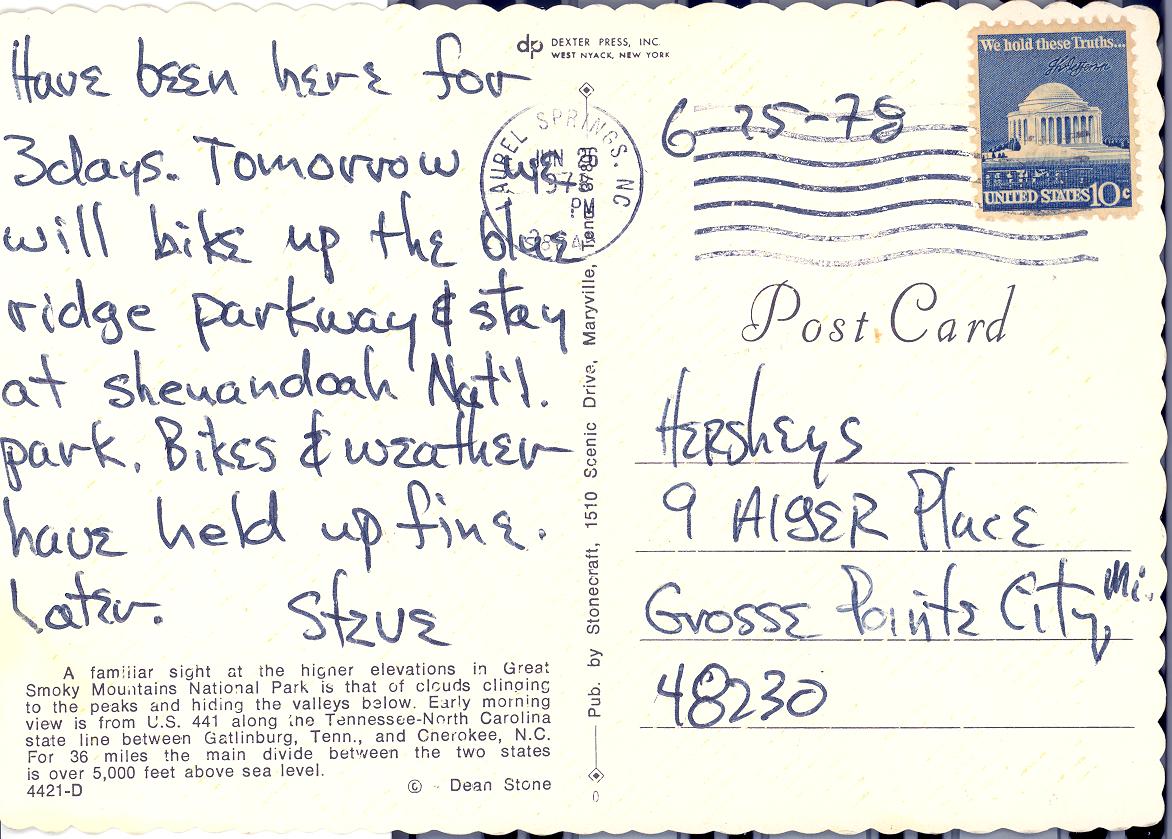 Have been here for
3days. Tomorrow we
will bike up the blue
ridge parkway & stay
at shenandoah Nat'l.
park. Bikes & weather
have held up fine.
Later. Steve
A familiar sight at the higher elevations in Great
Smoky Mountains National Park is that of clouds clinging
to the peaks and hiding the valleys below. Early morning
view is from U.S. 441 along the Tennessee-North Carolina
state line between Gatlinburg, Tenn., and Cherokee, N.C.
For 36 miles the main divide between the two states
is over 5,000 feet above sea level.
4421-D © - Dean Stone
dp DEXTER PRESS, INC.
WEST NYACK, NEW YORK
LAUREL SPRINGS, NC
JUN
PM
Pub. by Stonecraft, 1510 Scenic Drive, Maryville, Tenn.
6-25-78
We hold these Truths...
UNITED STATES 10c
Post Card
Hersheys
9 Alger Place
Grosse Pointe City, Mi.
48230